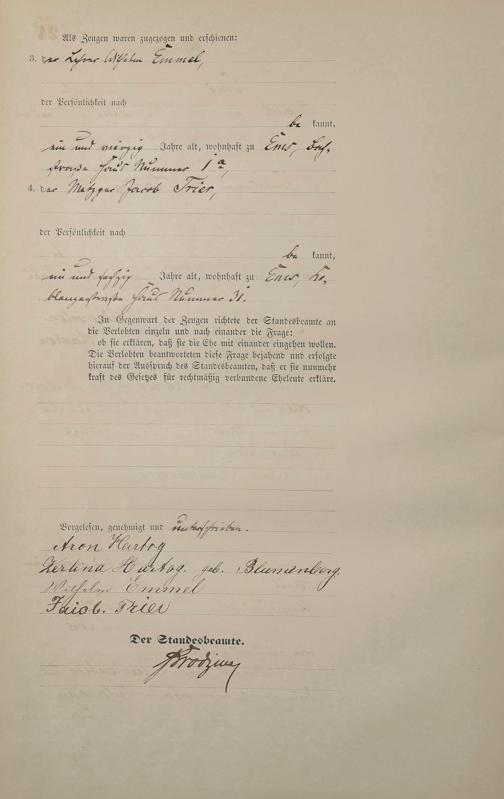 Als Zeugen waren zugezogen und erschienen:
3. der Lehrer Wilhelm Emmel,
der Persönlichkeit nach
be kannt,
ein und vierzig Jahre alt, wohnhaft zu Ems, Bach-
straße Haus Nummer 1a,
4. der Metzger Jacob Trier,
der Persönlichkeit nach
be kannt,
ein und sechzig Jahre alt, wohnhaft zu Ems, Ko-
blenzerstraße Haus Nummer 31.
In Gegenwart der Zeugen richtete der Standesbeamte an
die Verlobten einzeln und nach einander die Frage:
ob sie erklären, daß sie die Ehe mit einander eingehen wollen.
Die Verlobten beantworteten diese Frage bejahend und erfolgte
hierauf der Ausspruch des Standesbeamten, daß er sie nunmehr
kraft des Gesetzes für rechtmäßig verbundene Eheleute erkläre.
Vorgelesen, genehmigt und unterschrieben.
Aron Hartog
Zerlina Hartog geb. Blumenberg.
Wilhelm Emmel
Jacob Trier
Der Standesbeamte.